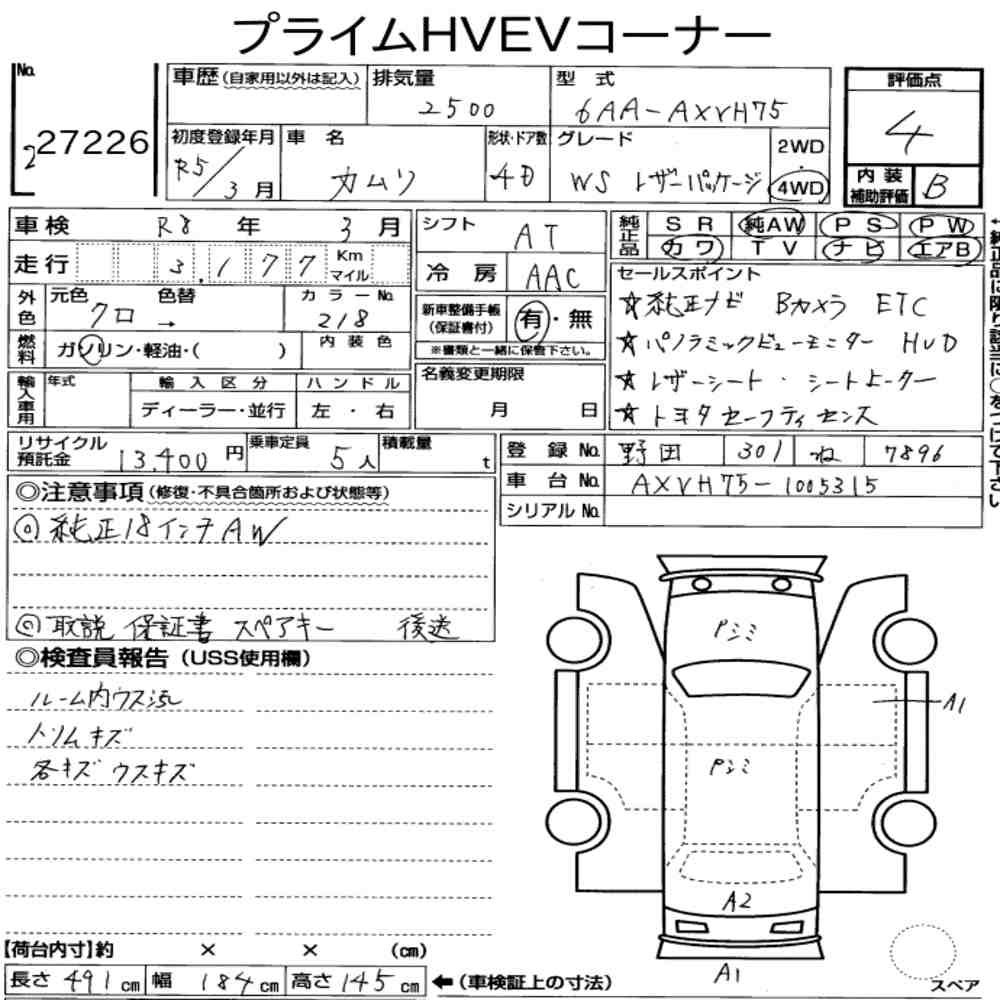 プライムHVEVコーナー
No.
2 27226
車歴(自家用以外は記入)
排気量
2500
型式
6AA-AXVH75
評価点
4
初度登録年月
R5/3月
車名
カムリ
形状・ドア数
4D
グレード
WS レザーパッケージ
2WD
・
4WD
内装
補助評価
B
車検 R8年 3月
シフト
AT
純正品
SR 純AW PS PW
カワ TV ナビ エアB
走行 3,177 Km マイル
冷房 AAC
セールスポイント
☆純正ナビ Bカメラ ETC
☆パノラミックビューモニター HUD
☆レザーシート・シートヒーター
☆トヨタセーフティセンス
外色
元色 色替
クロ →
カラーNo.
218
新車整備手帳
(保証書付)
有・無
※書類と一緒に保管下さい。
燃料
ガソリン・軽油・( )
内装色
名義変更期限
月 日
輸入車用
年式
輸入区分
ディーラー・並行
ハンドル
左・右
リサイクル
預託金 13,400円
乗車定員
5人
積載量
t
登録No. 野田 301 ね 7896
車台No. AXVH75-1005315
シリアルNo.
◎注意事項(修復・不具合箇所および状態等)
◎純正18インチAW
◎取説 保証書 スペアキー 後送
◎検査員報告(USS使用欄)
ルーム内ウス汚レ
トリムキズ
各キズ ウスキズ
Pシミ
A1
Pシミ
A2
A1
【荷台内寸】約 × × (cm)
長さ 491cm 幅 184cm 高さ 145cm ←(車検証上の寸法)
スペア